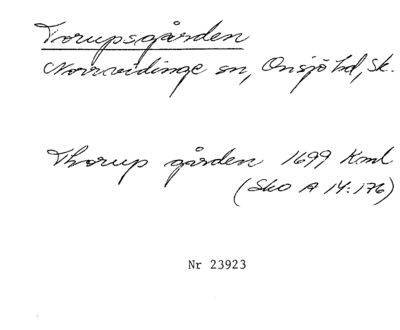 Torupsgården
Norrvidinge sn, Onsjö hd, Sk.
Thorup gården 1699 Kml
(Sko A 14:176)
Nr 23923